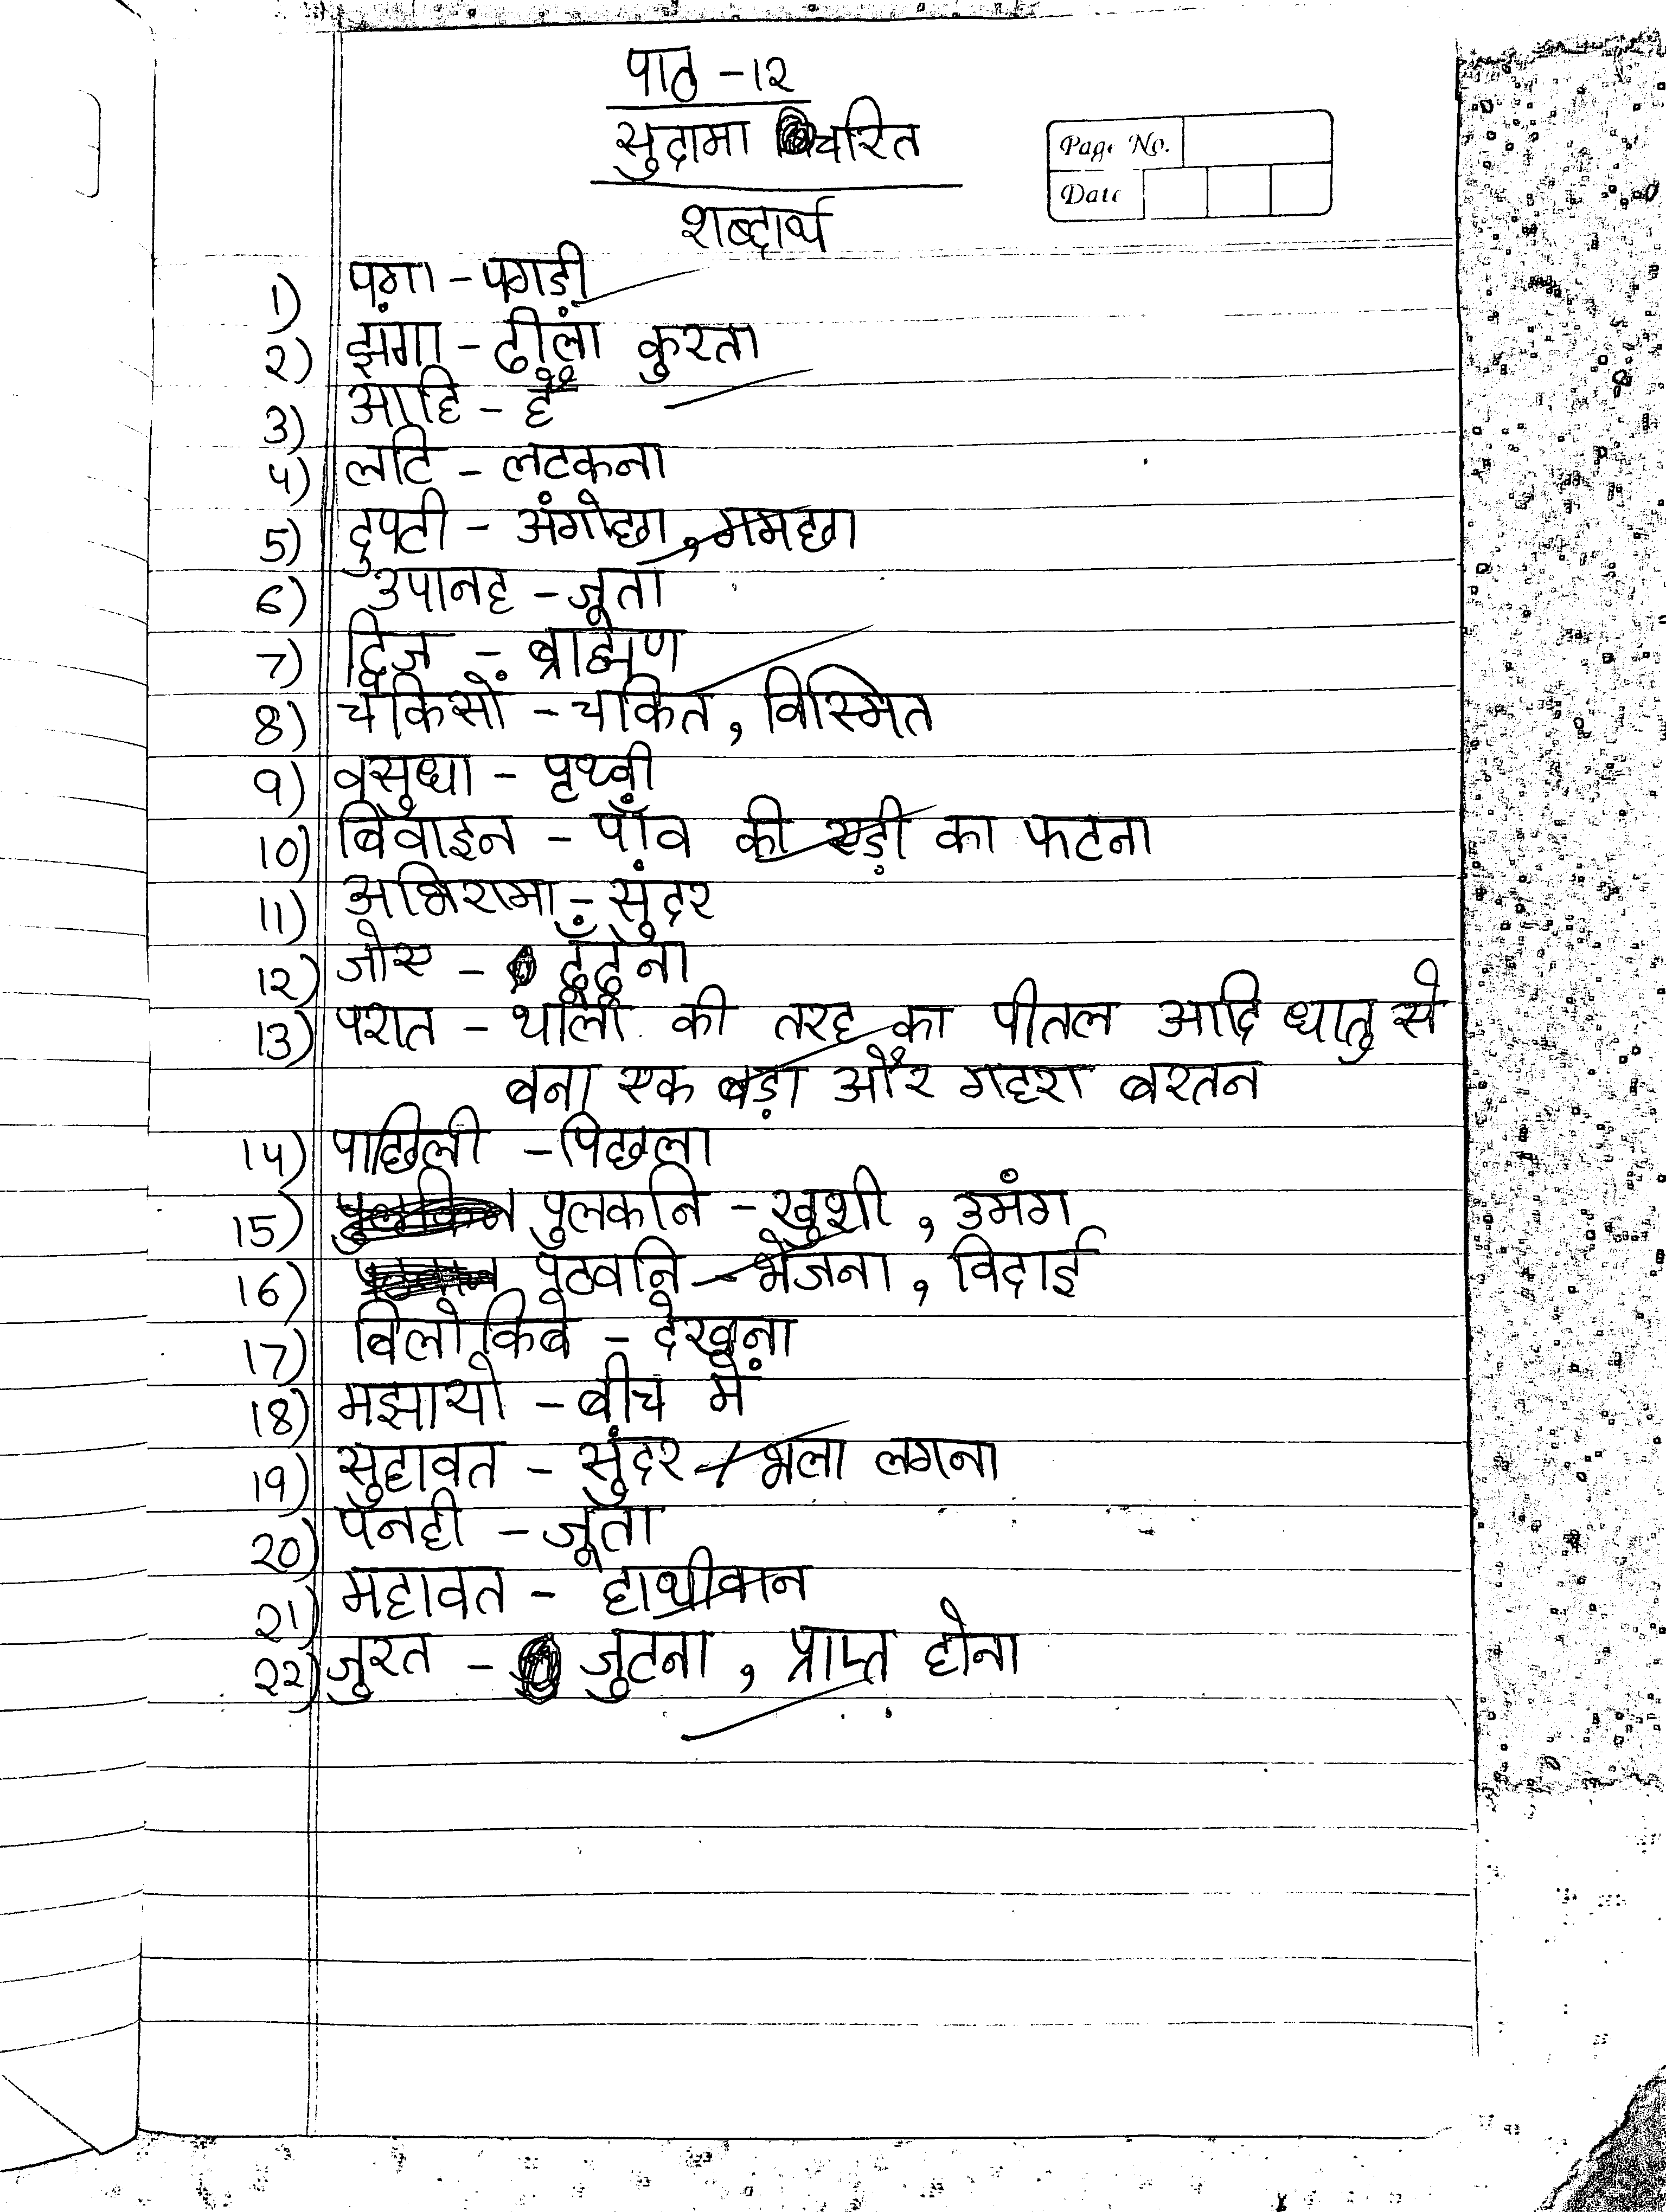 पाठ -१२
सुदामा चरित
Page No.
Date
शब्दार्थ
1) पगा - पगड़ी
२) झंगा - ढीला कुरता
3) आहि - है
4) लटि - लटकना
5) दुपटी - अंगोछा, गमछा
6) उपानह - जूता
7) द्विज - ब्राह्मण
8) चकिसों - चकित, विस्मित
9) वसुधा - पृथ्वी
10) बिवाइन - पाँव की एड़ी का फटना
11) अभिरामा - सुंदर
1२) जोए - ढूँढ़ना
13) परात - थाली की तरह का पीतल आदि धातु से
बना एक बड़ा और गहरा बरतन
14) पाछिली - पिछला
15) पुलकनि - खुशी, उमंग
16) पठवनि - भेजना, विदाई
17) बिलोकिबे - देखना
18) मझायो - बीच में
19) सुहावत - सुंदर + भला लगना
२0) पनही - जूता
२1) महावत - हाथीवान
२२) जुरत - जुटना, प्राप्त होना